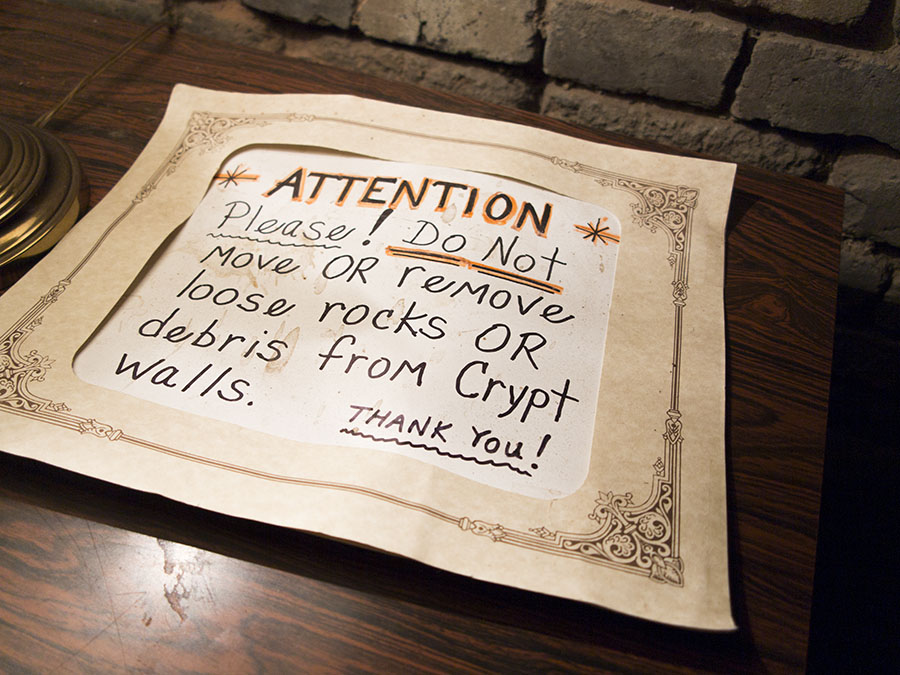 * ATTENTION *
Please! Do Not
move OR remove
loose rocks OR
debris from Crypt
walls.
THANK YOU!